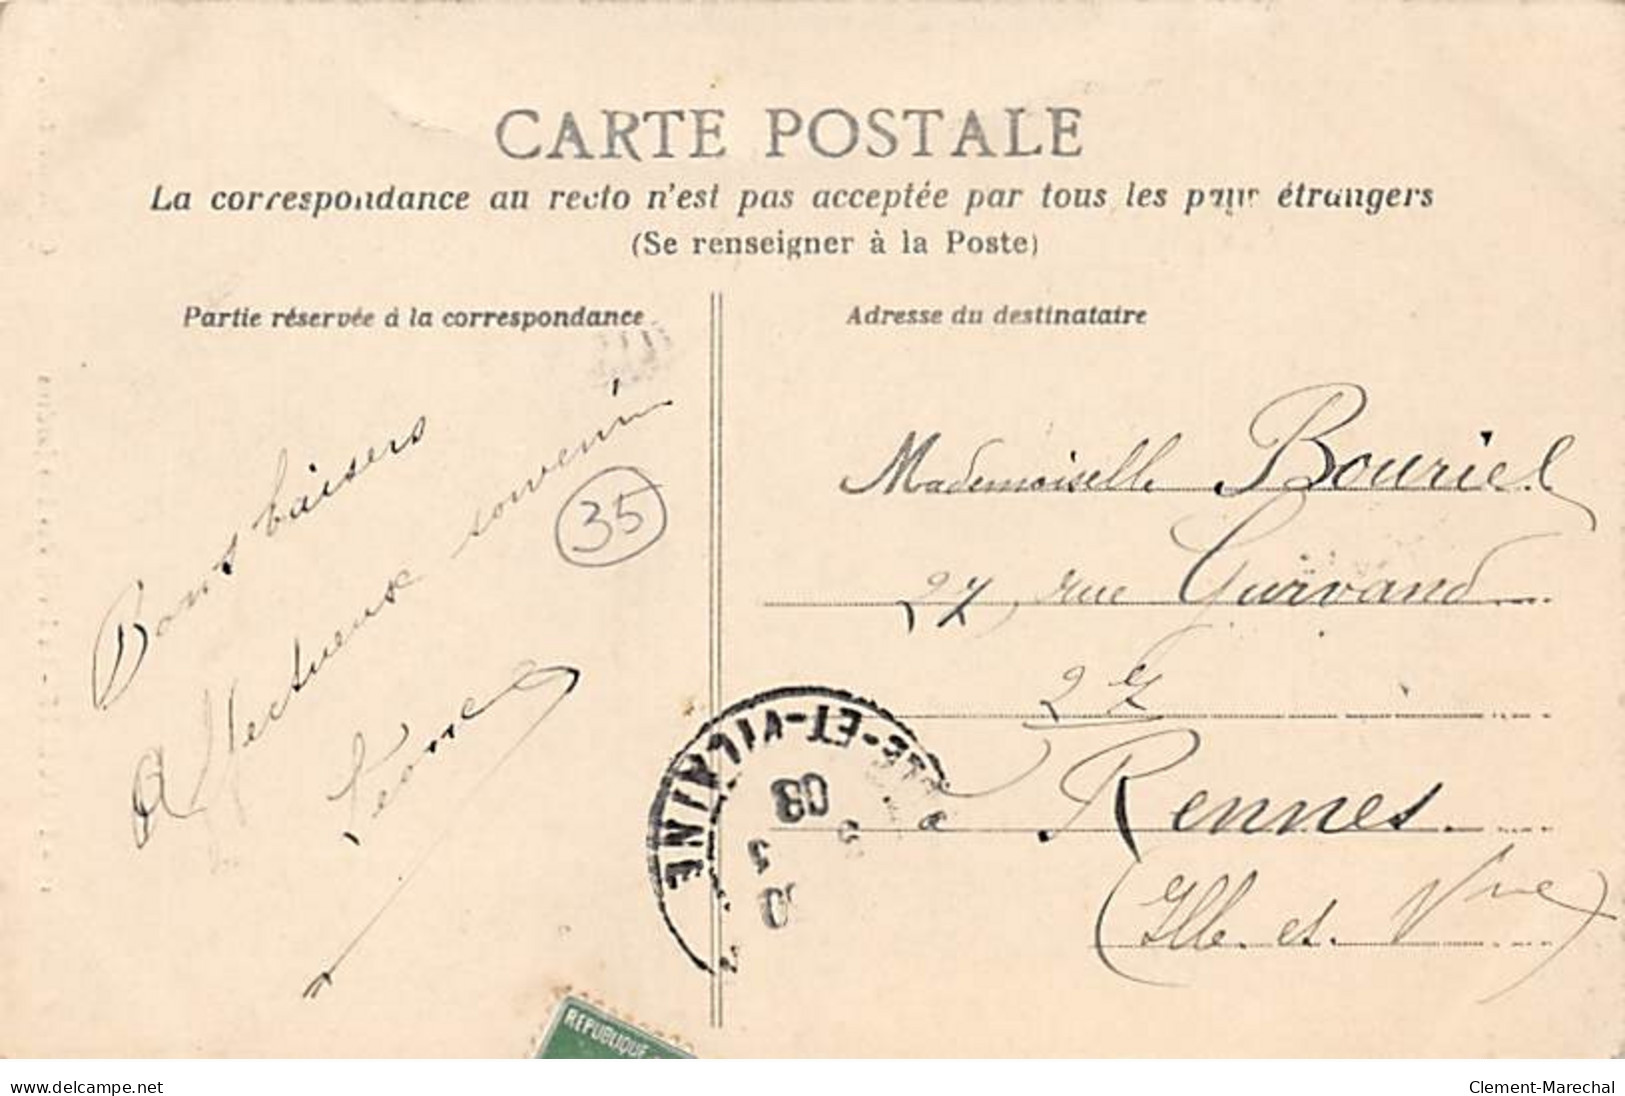 CARTE POSTALE
La correspondance au recto n'est pas acceptée par tous les pays étrangers
(Se renseigner à la Poste)
Partie réservée à la correspondance
Adresse du destinataire
Bons baisers
Affectueux souvenir
35
Mademoiselle Bouriel
27, rue Gurvand
27
à Rennes
(Ille et Vne)
ILLE-ET-VILAINE
08
REPUBLIQUE
www.delcampe.net
Clement-Marechal